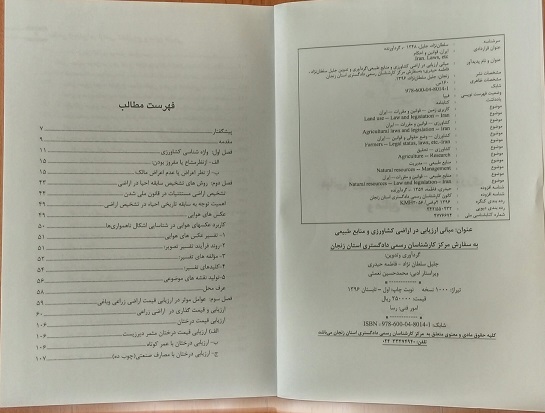 سرشناسه : سلطان‌نژاد، جلیل، ۱۳۴۸ -، گردآورنده
عنوان قراردادی : ایران. قوانین و احکام
Iran. Laws, etc
عنوان و نام پدیدآور : مبانی ارزیابی در اراضی کشاورزی و منابع طبیعی/گردآوری و تدوین جلیل سلطان‌نژاد،
فاطمه حیدری؛ به‌سفارش مرکز کارشناسان رسمی دادگستری استان زنجان.
مشخصات نشر : زنجان: جلیل سلطان‌نژاد، ۱۳۹۶.
مشخصات ظاهری
شابک : 978-600-04-8014-1
وضعیت فهرست نویسی : فیپا
یادداشت : کتابنامه
موضوع : کاربری زمین -- قوانین و مقررات -- ایران
موضوع : Land use -- Law and legislation -- Iran
موضوع : کشاورزی -- قوانین و مقررات -- ایران
موضوع : Agricultural laws and legislation -- Iran
موضوع : کشاورزان -- وضع حقوقی و قوانین -- ایران
موضوع : Farmers -- Legal status, laws, etc. -Iran
موضوع : کشاورزی -- تحقیق
موضوع : Agriculture -- Research
موضوع : منابع طبیعی -- مدیریت
موضوع : Natural resources -- Management
موضوع : منابع طبیعی -- قوانین و مقررات -- ایران
موضوع : Natural resources -- Law and legislation -- Iran
شناسه افزوده : حیدری، فاطمه، ۱۳۵۲ -، گردآورنده
شناسه افزوده
رده بندی کنگره
رده بندی دیویی
شماره کتابشناسی ملی
عنوان: مبانی ارزیابی در اراضی کشاورزی و منابع طبیعی
به سفارش مرکز کارشناسان رسمی دادگستری استان زنجان
گردآوری وتدوین:
جلیل سلطان نژاد - فاطمه حیدری
ویراستار ادبی: محمدحسین نعمتی
تیراژ: ۱۰۰۰ نسخه نوبت چاپ:اول - تابستان ۱۳۹۶
قیمت: ۲۵۰۰۰۰ ریال
امور فنی: رسا
شابک: ISBN : 978-600-04-8014-1
کلیه حقوق مادی و معنوی متعلق به مرکز کارشناسان رسمی دادگستری استان زنجان می‌باشد
تلفن: ۳۳۴۴۷۹۲۰ ۰۲۴
فهرست مطالب
پیشگفتار ۷
مقدمه ۹
فصل اول: واژه شناسی کشاورزی ۱۱
الف- ازنظرمشاع یا مفروز بودن: ۱۵
ب- از نظر اعراض یا عدم اعراض مالک: ۱۵
فصل دوم: روش های تشخیص سابقه احیا در اراضی ۴۳
تشخیص اراضی مستثنیات در قانون ملی شدن ۴۴
اهمیت توجه به سابقه تاریخی احیاء در تشخیص اراضی
عکس های هوایی
کاربرد عکسهای هوایی در شناسایی اشکال ناهمواری‌ها
۱- تفسیر عکس های هوایی
۲- روند فرآیند تفسیر تصویر:
۳- مؤلفه های تفسیر:
۴- کلیدهای تفسیر:
۵- تولید نقشه های موضوعی
عرف محل ۵۸
فصل سوم: عوامل موثر در ارزیابی قیمت اراضی زراعی وباغی ۵۹
ارزیابی و قیمت گذاری در اراضی زراعی
ارزیابی قیمت درختان ۱۰۶
الف- ارزیابی قیمت درختان مثمر دیرزیست ۱۰۶
ب- ارزیابی درختان با عمر کوتاه ۱۰۶
ج- ارزیابی درختان با مصارف صنعتی(چوب ده) ۱۰۷